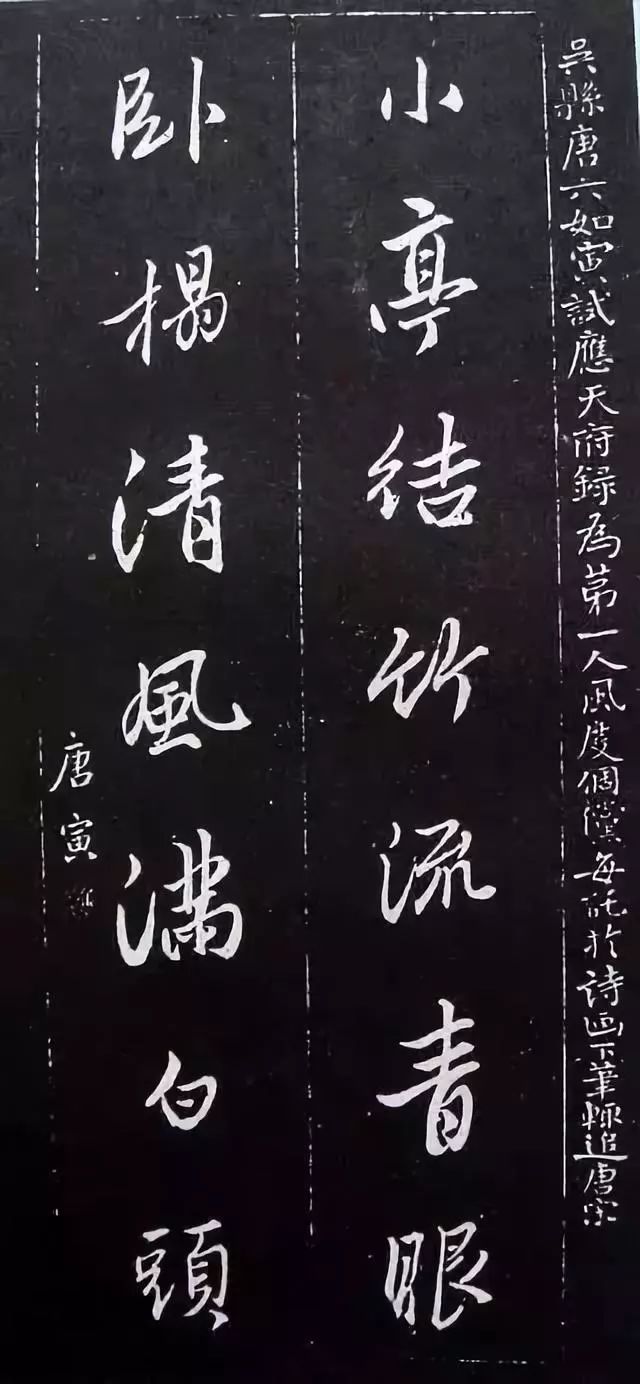 吳縣唐六如寅試應天府錄為第一人風度倜儻每託於詩画下筆輙追唐宋
小亭結竹流青眼
卧榻清風滿白頭
唐寅